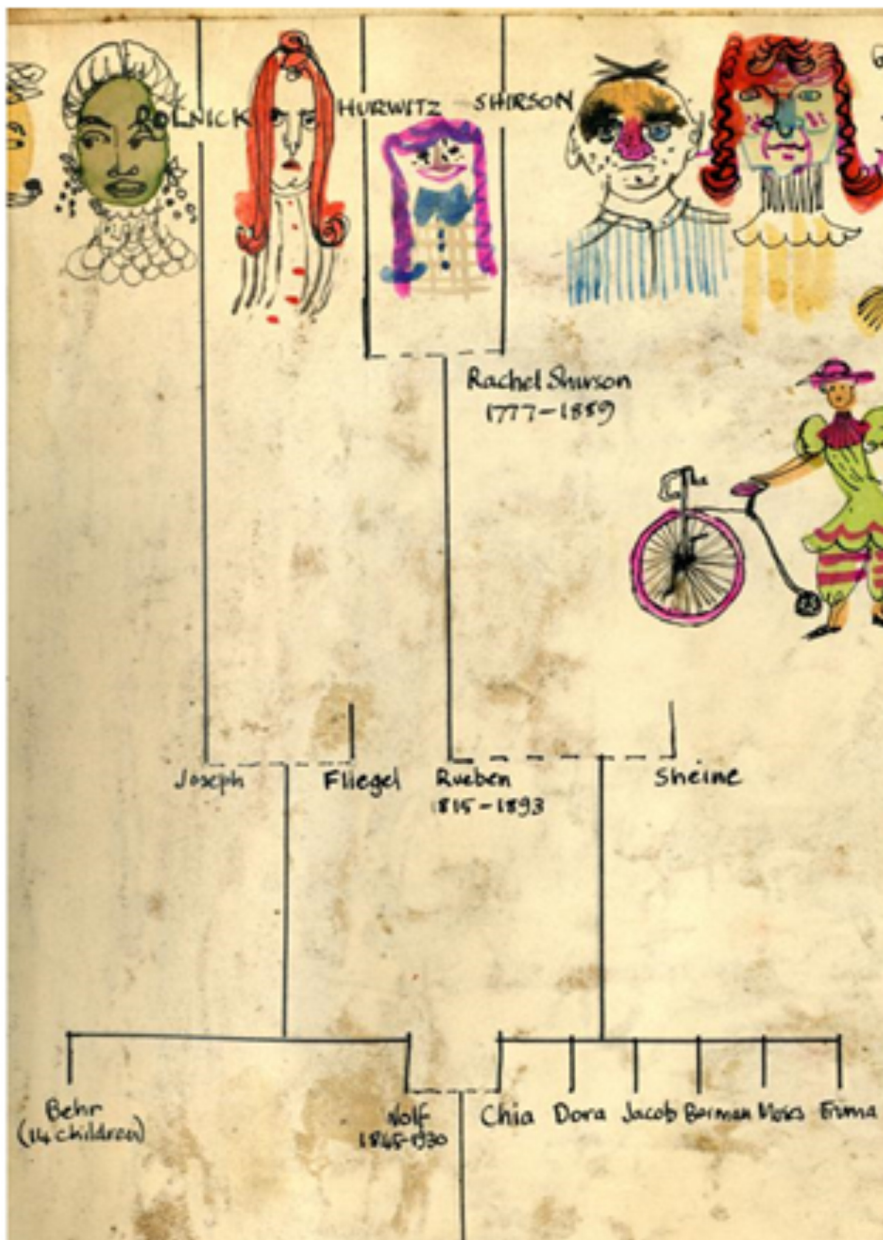 ROLNICK
HURWITZ
SHIRSON
Rachel Shirson
1777-1889
Joseph
Fliegel
Rueben
1815-1893
Sheine
Behr
(14 children)
Wolf
1845-1930
Chia
Dora
Jacob
Berman
Moses
Emma